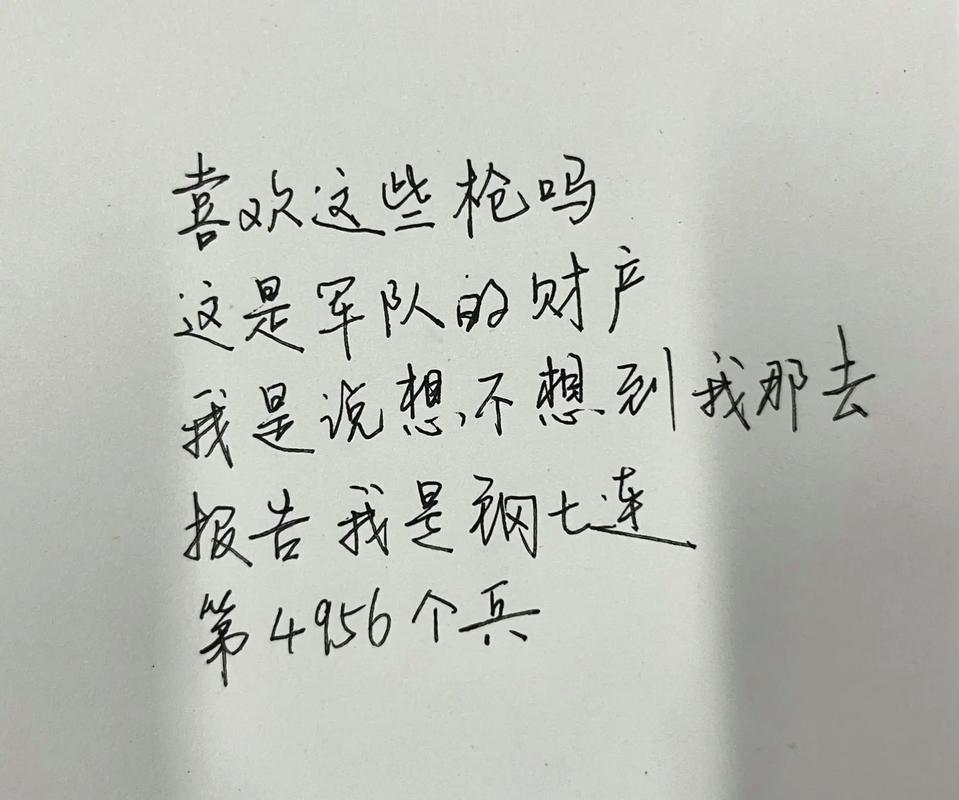 喜欢这些枪吗
这是军队的财产
我是说想不想到我那去
报告 我是钢七连
第4956个兵